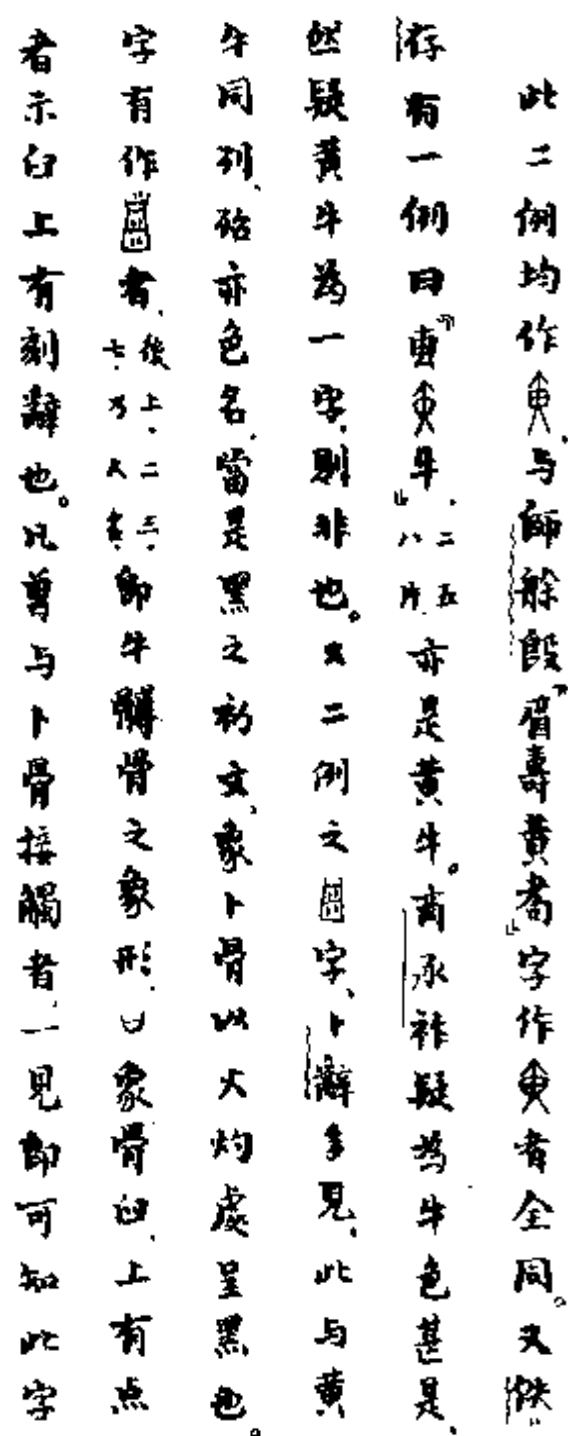 此二例均作，与師艅𣪘『眉壽黃耇』字作者全同。又佚
存有一例曰『叀牛』，二五八片亦是黃牛。商承祚疑為牛色甚是，
然疑黃牛為一字，則非也。二例之字，卜辭多見，此与黃
牛同列，亦色名，當是黑之初文，象卜骨以火灼處呈黑也。
字有作者，後上，二三，七，乃大，即牛髆骨之象形，凵象骨臼，上有点
者示臼上有刻辭也。凡曾与卜骨接觸者，一見即可知此字